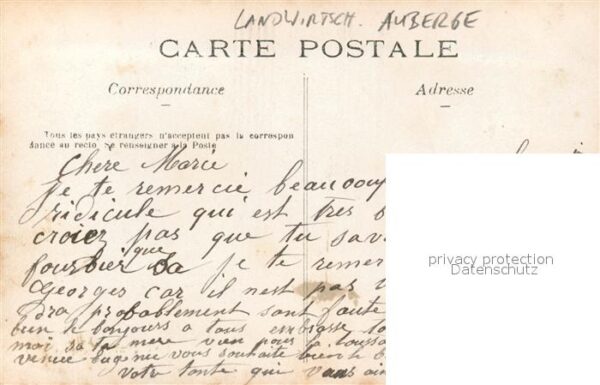 LANDWIRTSCH. AUBERGE
CARTE POSTALE
Correspondance
Adresse
Tous les pays étrangers n'acceptent pas la correspon
dance au recto, se renseigner à la Poste
Chère Marie
je te remercie beaucoup
ridicule qui est tres
croiez pas que tu sav
que
je te remer
Georges car il nest pas
dra probablement sont faute
bonjours a tous embrasse
moi ta mere vien pour la toussa
vous souhaite bien le
Votre tante qui vous aim
privacy protection
Datenschutz